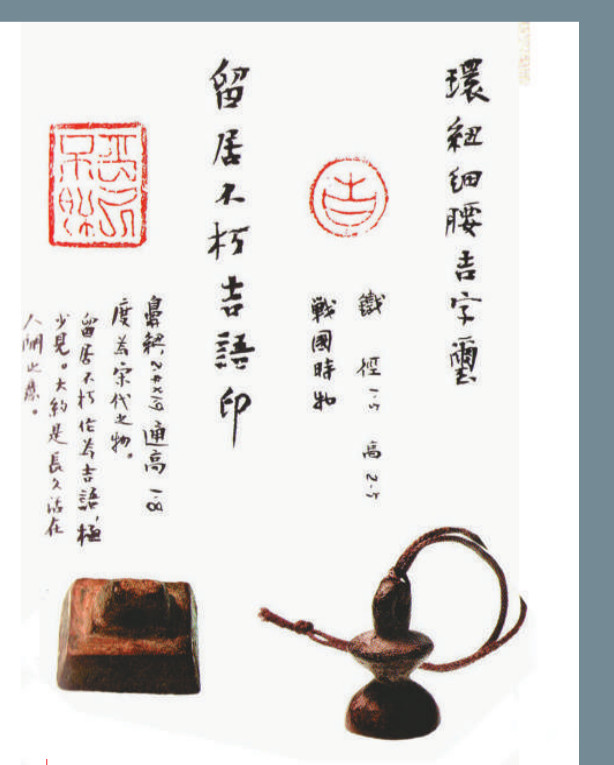 環紐細腰吉字璽
吉
鐵 徑1.5 高2.5
戰國時物
留居不朽吉語印
留居不朽
鼻紐,2.4×1.9 通高1.8
度爲宋代之物。
留居不朽作爲吉語,極
少見。大約是長久活在
人間之意。